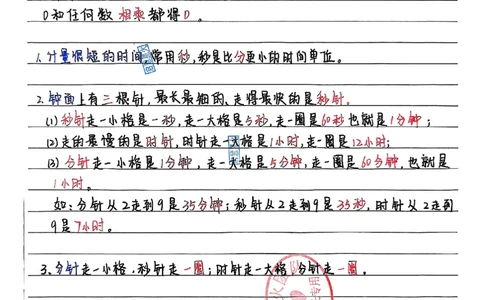 0和任何数相乘都得0。
1.计量很短的时间,常用秒,秒是比分更小的时间单位。
2.钟面上有三根针,最长最细的、走得最快的是秒针。
(1)秒针走一小格是一秒,走一大格是5秒,走一圈是60秒也就是1分钟;
(2)走的最慢的是时针,时针走一大格是1小时,走一圈是12小时;
(3)分针走一小格是1分钟,走一大格是5分钟,走一圈是60分钟,也就是
1小时。
如:分针从2走到9是35分钟;秒针从2走到9是35秒,时针从2走到
9是7小时。
3.分针走一小格,秒针走一圈;时针走一大格,分针走一圈。